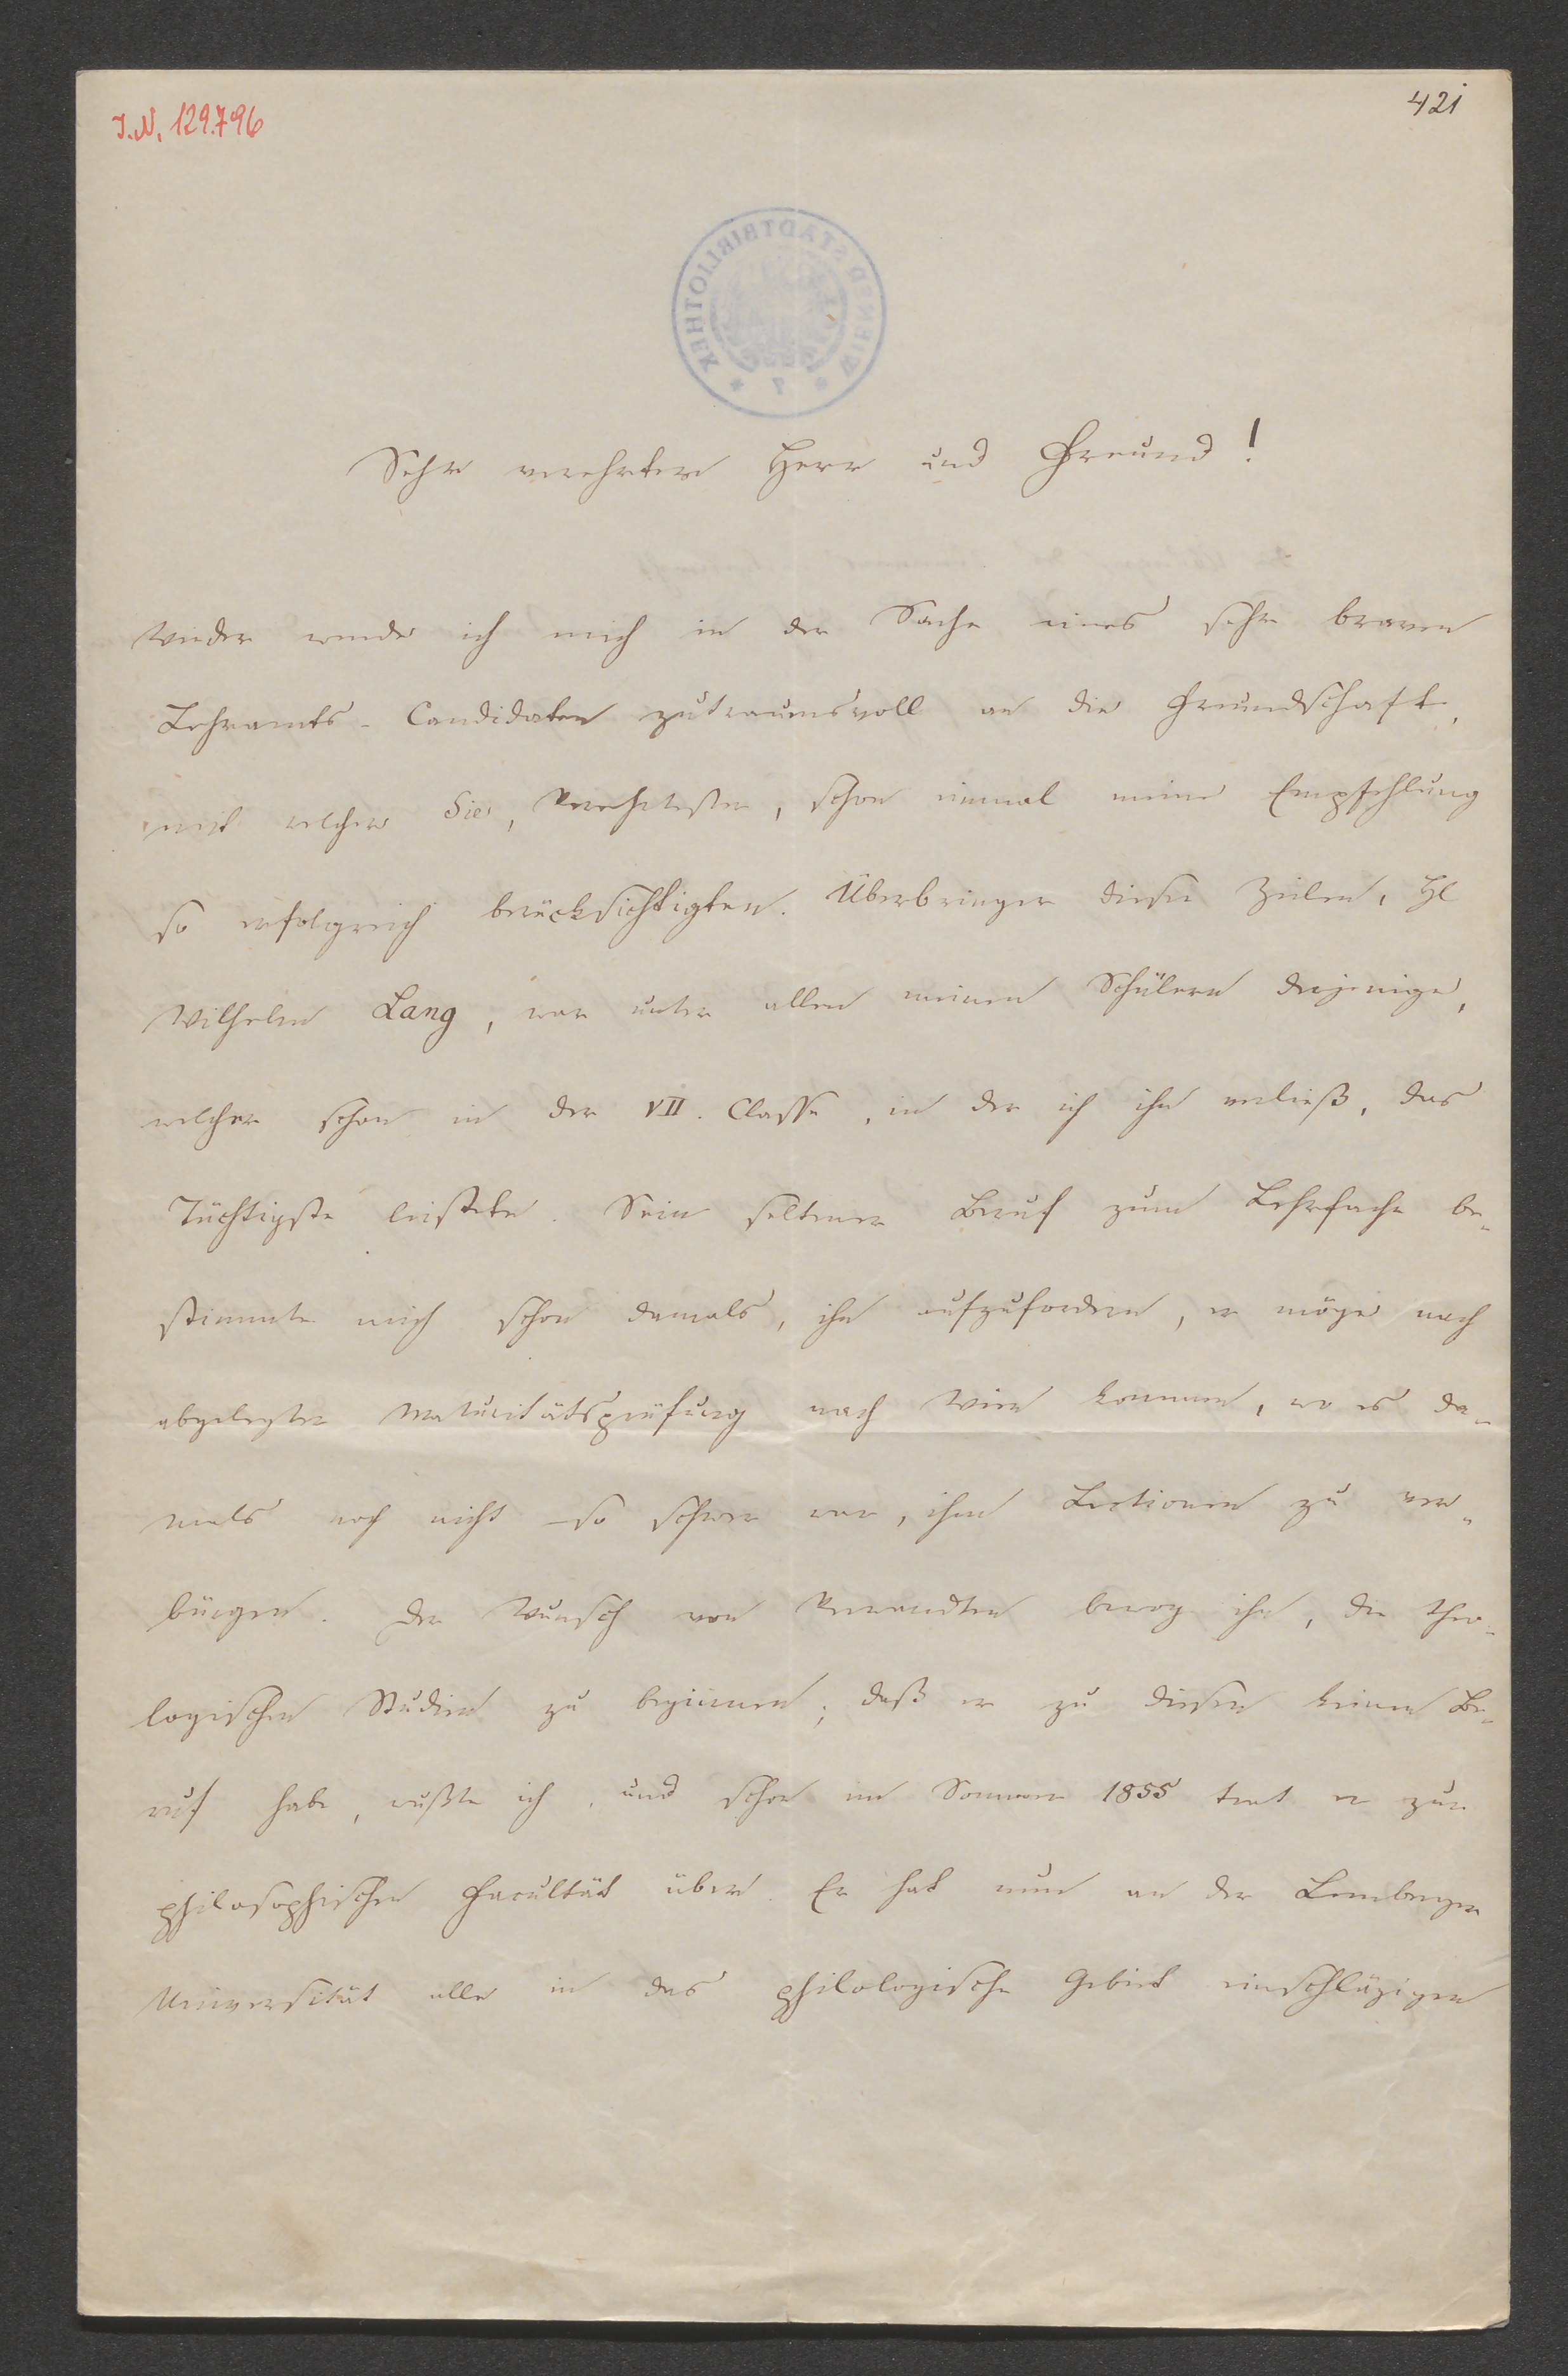 I.N. 129.796
421
WIENER STADTBIBLIOTHEK
* 7 *
Sehr verehrter Herr und Freund!
Wieder wende ich mich in der Sache eines sehr braven
Lehramts-Candidaten zutrauensvoll an die Freundschaft,
mit welcher Sie, Verehrtester, schon einmal meine Empfehlung
so erfolgreich berücksichtigten. Überbringer dieser Zeilen, H
Wilhelm Lang, war unter allen meinen Schülern derjenige,
welcher schon in der VII. Classe, in der ich ihn verließ, das
Tüchtigste leistete. Sein seltener Beruf zum Lehrfache be-
stimmte mich schon damals, ihn aufzufordern, er möge nach
abgelegter Maturitätsprüfung nach Wien kommen, wo es da-
mals noch nicht so schwer war, ihm Lectionen zu ver-
bürgen. Der Wunsch von Verwandten bewog ihn, die theo-
logischen Studien zu beginnen; daß er zu diesen keinen Be-
ruf habe, wußte ich, und schon im Sommer 1855 trat er zur
philosophischen Facultät über. Er hat nun an der Lemberger
Universität alle in das philologische Gebiet einschlägigen